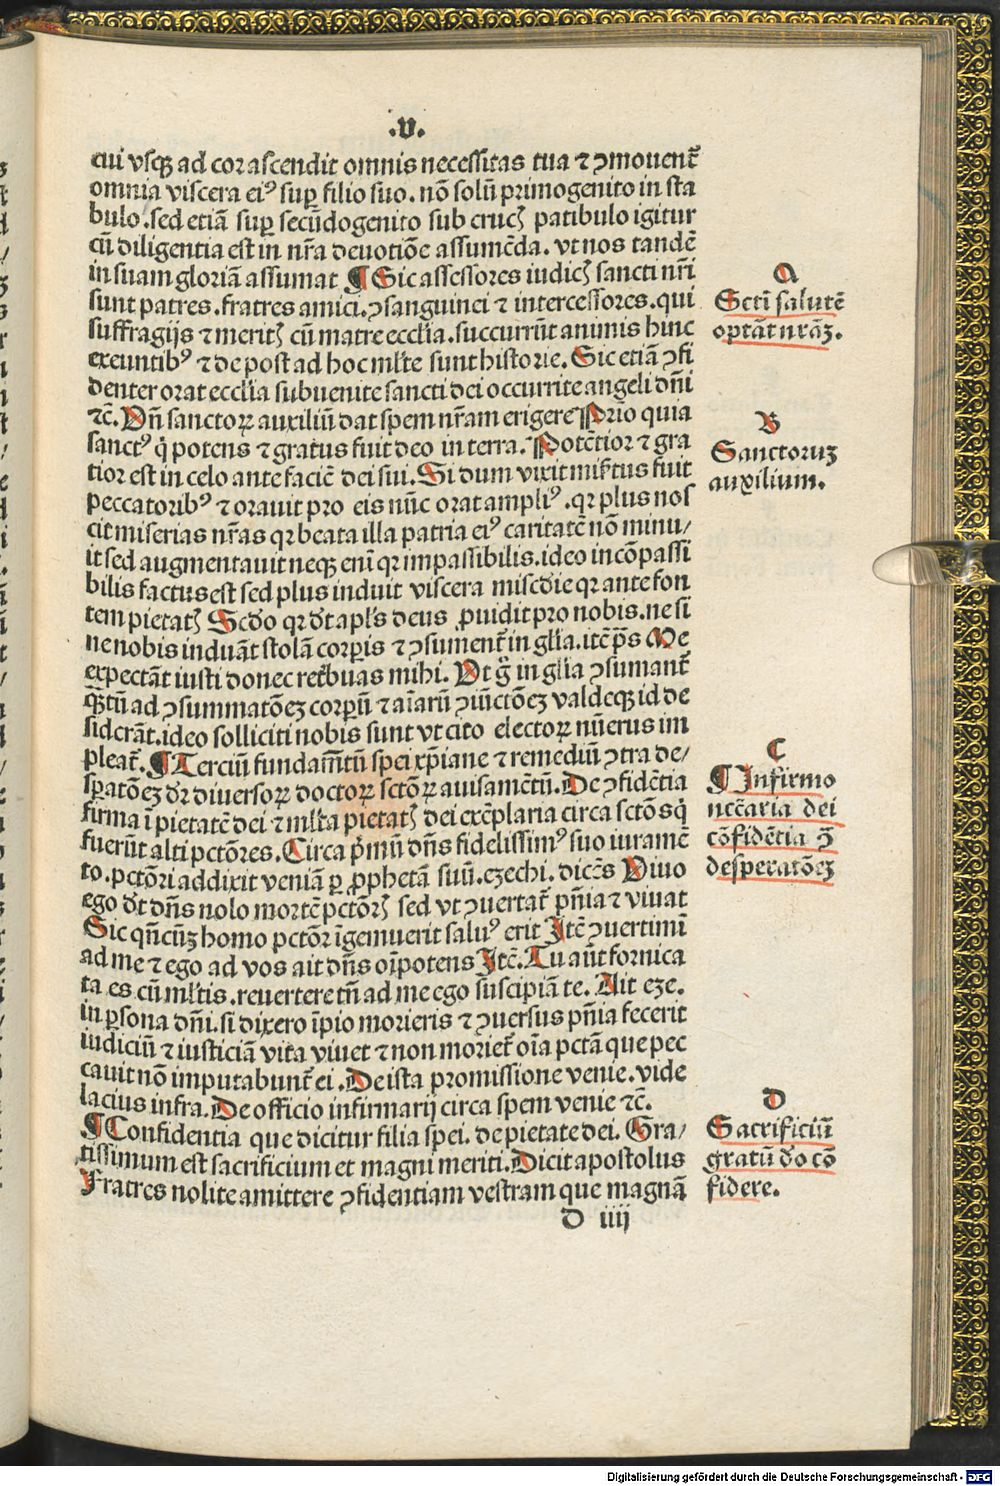 .V.
cui vsqꝫ ad cor ascendit omnis necessitas tua ⁊ ꝯmouent᷑
omnia viscera eiꝰ suꝑ filio suo. nō solū primogenito in sta
bulo. sed etiā suꝑ secūdogenito sub crucꝭ patibulo igitur
cū diligentia est in nr̄a deuotiōe assumēda. vt nos tandē
in suam gloriā assumat ¶ Sic assessores iudicꝭ sancti nr̄i
sunt patres. fratres amici. ꝯsanguinei ⁊ intercessores. qui
suffragijs ⁊ meritꝭ cū matre eccl̄ia. succurrūt animis hinc
exeuntibꝰ ⁊ de post ad hoc ml̄te sunt historie. Sic etiā ꝯfi
denter orat eccl̄ia subuenite sancti dei occurrite angeli dn̄i
⁊c̄. Vn̄ sanctoꝝ auxiliū dat spem nr̄am erigere Prīo quia
sanctꝰ q̇ potens ⁊ gratus fuit deo in terra. Potētior ⁊ gra
tior est in celo ante faciē dei sui. Si dum vixit mīst᷑us fuit
peccatoribꝰ ⁊ orauit pro eis nūc orat ampliꝰ. qꝛ plus nos
cit miserias nr̄as qꝛ beata illa patria eiꝰ caritatē nō minu/
it sed augmentauit neqꝫ eni qꝛ impassibilis. ideo incōpassi
bilis factus est sed plus induit viscera misc̄die qꝛ ante fon
tem pietatꝭ Scdo qꝛ dt̄ apl̄s deus ꝓuidit pro nobis. ne si
ne nobis induāt stolā corꝑis ⁊ ꝯsument᷑ in gl̄ia. itē ps̄ Me
expectāt iusti donec ret᷑buas mihi. Vt g̊ in gl̄ia ꝯsumant᷑
q̄ꝫtū ad ꝯsummatōeꝫ corꝑū ⁊ aīarū ꝯiūctōeꝫ valdeqꝫ id de
siderāt. ideo solliciti nobis sunt vt cito electoꝝ nūerus im
pleat᷑. ¶ Terciū fundam̄tū spei xp̄iane ⁊ remediū ꝯtra de/
sꝑatōeꝫ dꝛ diuersoꝝ doctoꝝ sctōꝝ auisamētū. De ꝯfidētia
firma ī pietatē dei ⁊ ml̄ta pietatꝭ dei exēplaria circa sctōs q̇
fuerūt alti pctōres. Circa pⁱmū dn̄s fidelissimꝰ suo iuramē
to. pctōri addixit veniā ꝑ ꝓphetā suū. ezechi. dicēs Viuo
ego dt̄ dn̄s nolo mortē pctōrꝭ sed vt ꝯuertat᷑ pn̄ia ⁊ viuat
Sic qn̄cūꝫ homo pctōr īgemuerit saluꝰ erit Itē ꝯuertimī
ad me ⁊ ego ad vos ait dn̄s oīpotens Itē. Tu aūt fornica
ta es cū ml̄tis. reuertere tn̄ ad me ego suscipiā te. Ait eze.
in ꝑsona dn̄i. si dixero īpio morieris ⁊ ꝯuersus pn̄ia fecerit
iudiciū ⁊ iusticiā vita viuet ⁊ non moriet᷑ oīa pctā que pec
cauit nō imputabunt᷑ ei. De ista promissione venie. vide
lacius infra. De officio infirmarij circa spem venie ⁊c̄.
¶ Confidentia que dicitur filia spei. de pietate dei. Gra/
tissimum est sacrificium et magni meriti. Dicit apostolus
Fratres nolite amittere ꝯfidentiam vestram que magnā
D iiij
A
Scti salutē
optāt nr̄aꝫ.
B
Sanctoruꝫ
auxilium.
C
¶ Infirmo
ncēaria dei
cōfidētia ꝯ̄
desperatōeꝫ
D
Sacrificiū
gratū do cō
fidere.
Digitalisierung gefördert durch die Deutsche Forschungsgemeinschaft - DFG